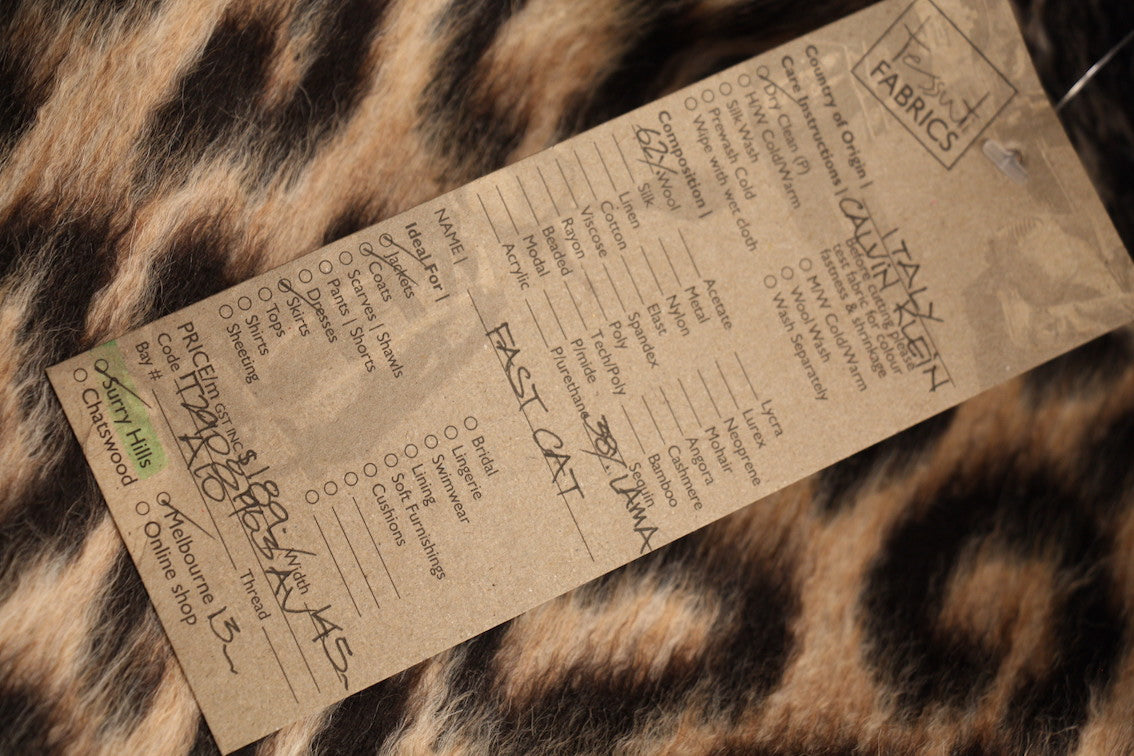 Tessuti
FABRICS
Country of Origin | ITALY
Care Instructions | CALVIN KLEIN
Dry Clean (P)
H/W Cold/Warm
Silk Wash
Prewash Cold
Wipe with wet cloth
Before cutting please
test fabric for colour
fastness & shrinkage
M/W Cold/Warm
Wool Wash
Wash Separately
Composition |
62% Wool
Silk
Linen
Cotton
Viscose
Rayon
Beaded
Modal
Acrylic
Acetate
Metal
Nylon
Elast
Spandex
Poly
Tech/Poly
P/mide
P/urethane
Lycra
Lurex
Neoprene
Mohair
Angora
Cashmere
Bamboo
Sequin
38% LAMA
NAME | FAST CAT
Ideal For |
Jackets
Coats
Scarves | Shawls
Pants | Shorts
Dresses
Skirts
Tops
Shirts
Sheeting
Bridal
Lingerie
Swimwear
Lining
Soft Furnishings
Cushions
PRICE/m GST INC $ Width 145
Code
Thread
Bay #
Surry Hills
Chatswood
Melbourne 13
Online shop